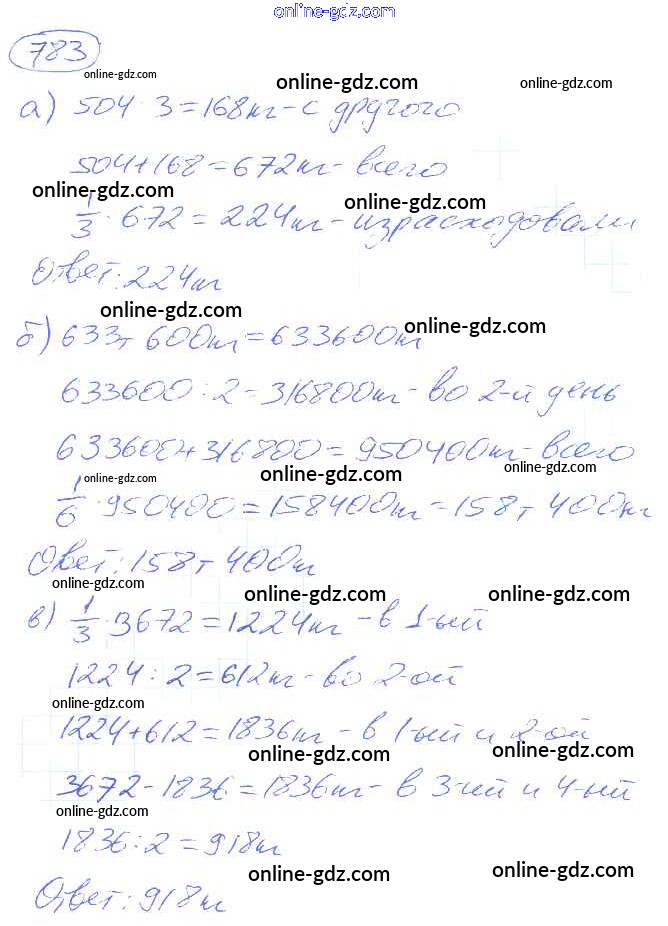 online-gdz.com
783
online-gdz.com
online-gdz.com
online-gdz.com
а) 504 : 3 = 168кг - с другого
504 + 168 = 672кг - всего
online-gdz.com
online-gdz.com
1/3 · 672 = 224кг - израсходовали
Ответ: 224кг
online-gdz.com
online-gdz.com
б) 633т 600кг = 633600кг
633600 : 2 = 316800кг - во 2-й день
633600 + 316800 = 950400кг - всего
online-gdz.com
online-gdz.com
online-gdz.com
1/6 · 950400 = 158400кг = 158т 400кг
online-gdz.com
online-gdz.com
Ответ: 158т 400кг
online-gdz.com
online-gdz.com
online-gdz.com
в) 1/3 · 3672 = 1224кг - в 1-ый
1224 : 2 = 612кг - во 2-ой
online-gdz.com
1224 + 612 = 1836кг - в 1-ый и 2-ой
online-gdz.com
online-gdz.com
3672 - 1836 = 1836кг - в 3-ий и 4-ый
online-gdz.com
1836 : 2 = 918кг
online-gdz.com
online-gdz.com
Ответ: 918кг